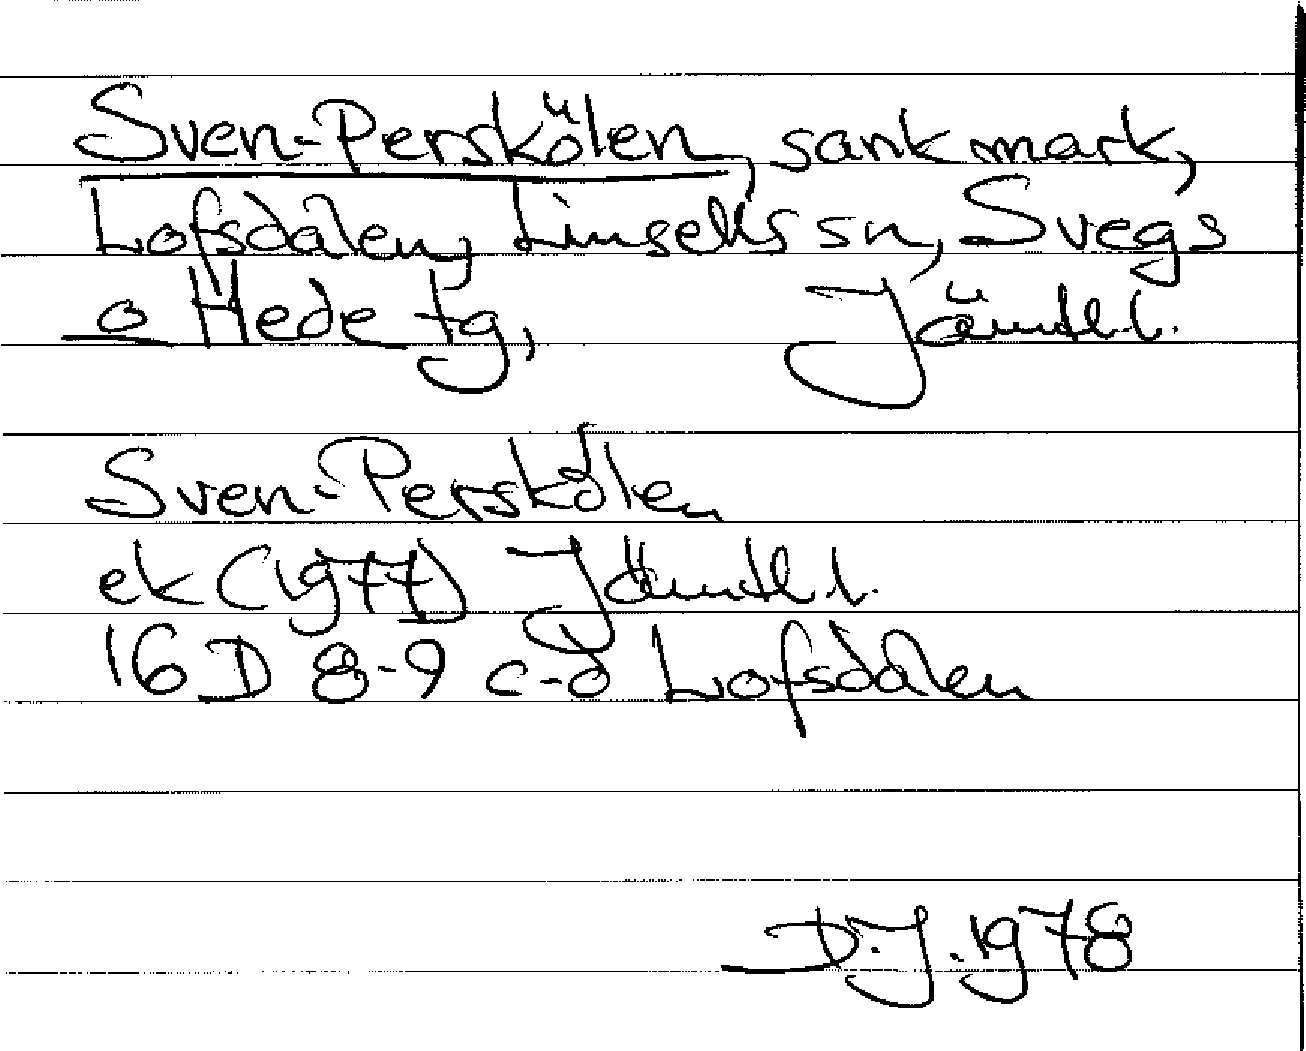 Sven-Perskölen, sank mark,
Lofsdalen, Linsells sn, Svegs
o Hede tg, Jämtl. l.
Sven-Perskölen
ek (1977) Jämtl. l.
16 D 8-9 c-d Lofsdalen
D.J. 1978